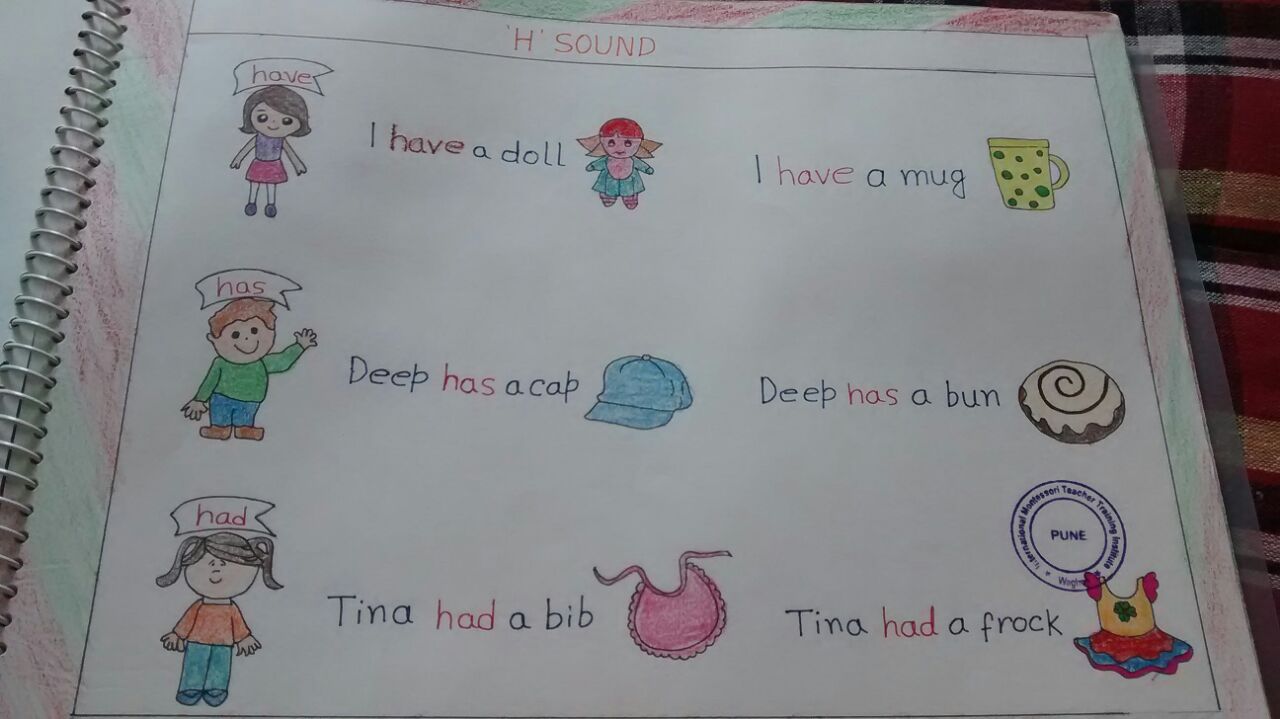 'H' SOUND
have
I have a doll
I have a mug
has
Deep has a cap
Deep has a bun
had
Tina had a bib
Tina had a frock
International Montessori Teacher Training Institute
PUNE